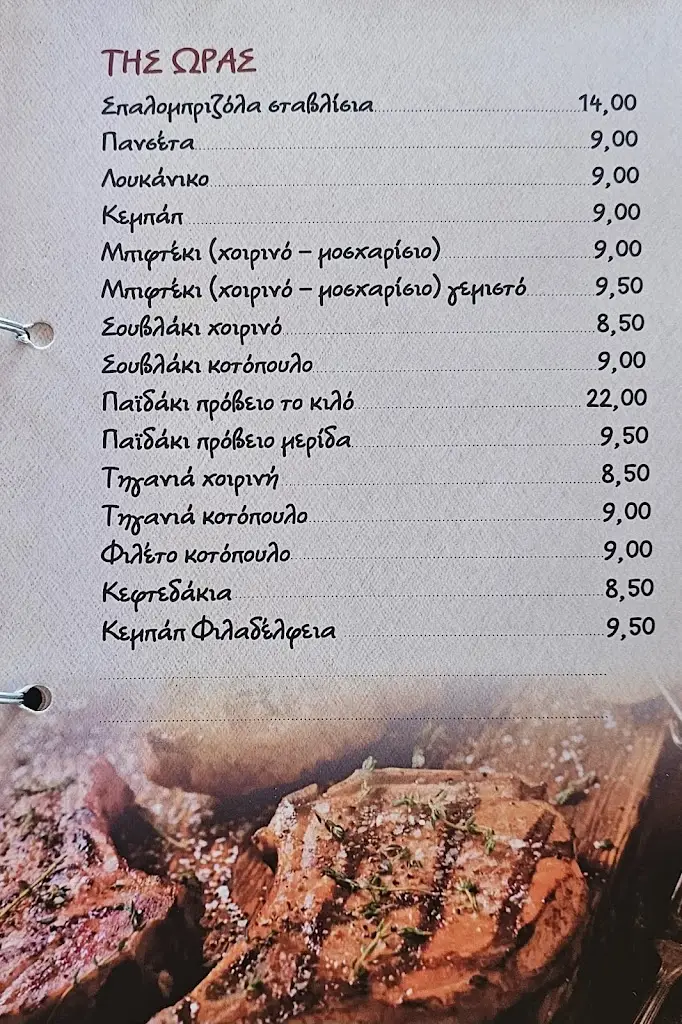 ΤΗΣ ΩΡΑΣ
Σπαλομπριζόλα σταβλίσια 14,00
Πανσέτα 9,00
Λουκάνικο 9,00
Κεμπάπ 9,00
Μπιφτέκι (χοιρινό – μοσχαρίσιο) 9,00
Μπιφτέκι (χοιρινό – μοσχαρίσιο) γεμιστό 9,50
Σουβλάκι χοιρινό 8,50
Σουβλάκι κοτόπουλο 9,00
Παϊδάκι πρόβειο το κιλό 22,00
Παϊδάκι πρόβειο μερίδα 9,50
Τηγανιά χοιρινή 8,50
Τηγανιά κοτόπουλο 9,00
Φιλέτο κοτόπουλο 9,00
Κεφτεδάκια 8,50
Κεμπάπ Φιλαδέλφεια 9,50